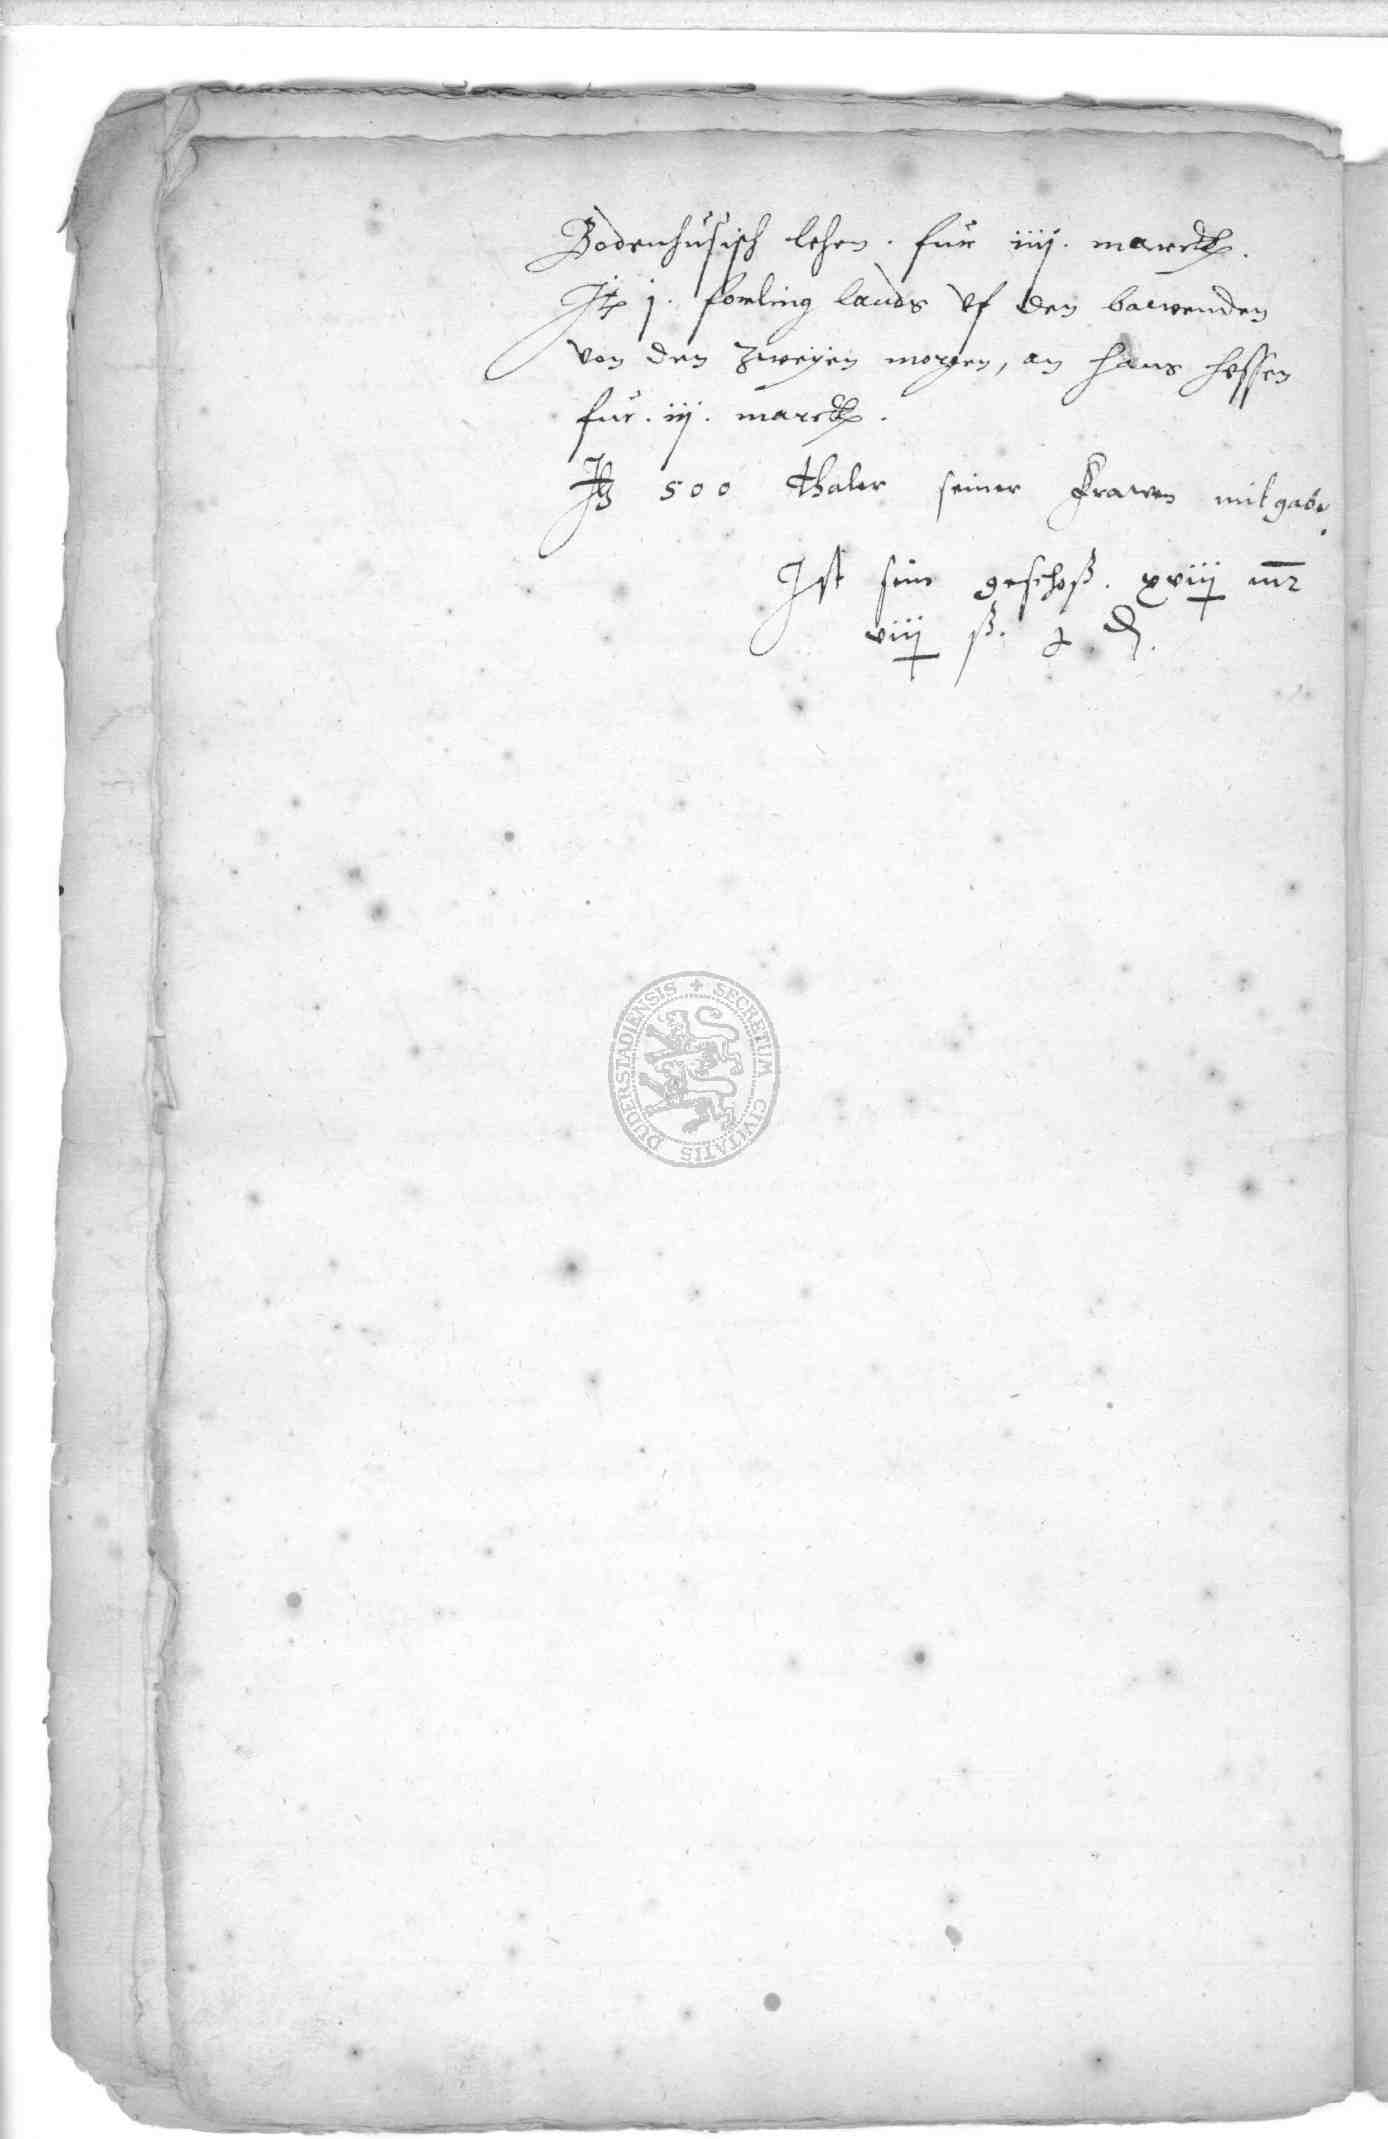 Bodenhusisch lehen . fur iiij . marck .
It j . forling lands vf den barwenden
von den zweyen morgen, an hans hessen
fur . iij . marck .
It 500 thaler seiner frawen mitgabe.
Ist sein geschoß . xviij mr
viij ß . d .
SECRETUM CIVITATIS DUDERSTADIENSIS